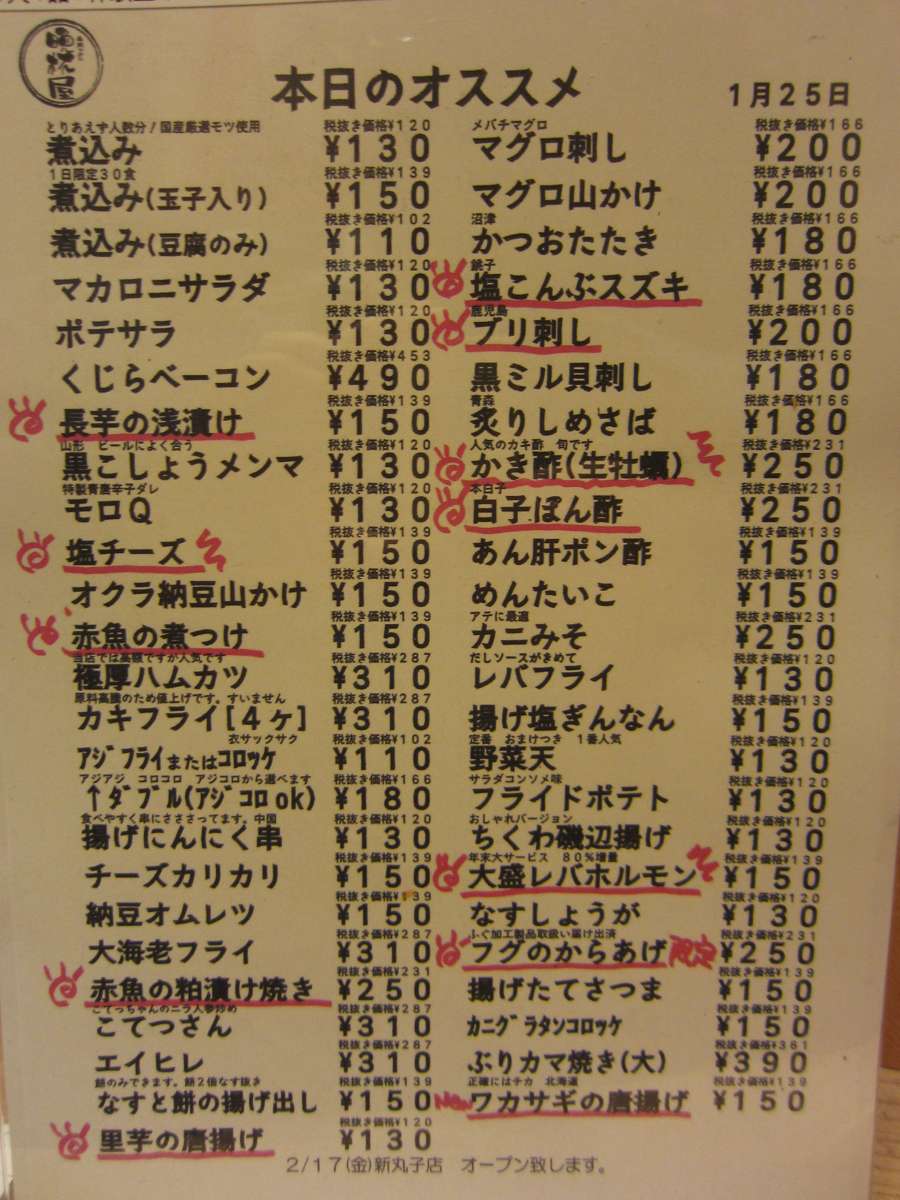 晩杯屋
本日のオススメ
1月25日
とりあえず人数分！国産厳選モツ使用 税抜き価格¥120
煮込み ¥130
1日限定30食 税抜き価格¥139
煮込み(玉子入り) ¥150
税抜き価格¥102
煮込み(豆腐のみ) ¥110
税抜き価格¥120
マカロニサラダ ¥130
税抜き価格¥120
ポテサラ ¥130
税抜き価格¥453
くじらベーコン ¥490
税抜き価格¥139
長芋の浅漬け ¥150
山形 ビールによく合う 税抜き価格¥120
黒こしょうメンマ ¥130
特製青唐辛子ダレ 税抜き価格¥120
モロQ ¥130
税抜き価格¥139
塩チーズ ¥150
税抜き価格¥139
オクラ納豆山かけ ¥150
税抜き価格¥139
赤魚の煮つけ ¥150
当店では高額ですが人気です 税抜き価格¥287
極厚ハムカツ ¥310
原料高騰のため値上げです。すいません 税抜き価格¥287
カキフライ[4ヶ] ¥310
衣サックサク 税抜き価格¥102
アジフライまたはコロッケ ¥110
アジアジ コロコロ アジコロから選べます 税抜き価格¥166
↑ダブル(アジコロok) ¥180
食べやすく串にさささってます。中国 税抜き価格¥120
揚げにんにく串 ¥130
税抜き価格¥139
チーズカリカリ ¥150
税抜き価格¥139
納豆オムレツ ¥150
税抜き価格¥287
大海老フライ ¥310
税抜き価格¥231
赤魚の粕漬け焼き ¥250
こてっちゃんのニラ人参炒め 税抜き価格¥287
こてつさん ¥310
税抜き価格¥287
エイヒレ ¥310
餅のみできます。餅2倍なす抜き 税抜き価格¥139
なすと餅の揚げ出し ¥150
税抜き価格¥120
里芋の唐揚げ ¥130
メバチマグロ 税抜き価格¥166
マグロ刺し ¥200
税抜き価格¥166
マグロ山かけ ¥200
沼津 税抜き価格¥166
かつおたたき ¥180
銚子 税抜き価格¥166
塩こんぶスズキ ¥180
鹿児島 税抜き価格¥166
ブリ刺し ¥200
税抜き価格¥166
黒ミル貝刺し ¥180
青森 税抜き価格¥166
炙りしめさば ¥180
人気のカキ酢 旬です 税抜き価格¥231
かき酢(生牡蠣) ¥250
本白子 税抜き価格¥231
白子ぽん酢 ¥250
税抜き価格¥139
あん肝ポン酢 ¥150
税抜き価格¥139
めんたいこ ¥150
アテに最適 税抜き価格¥231
カニみそ ¥250
だしソースがきめて 税抜き価格¥120
レバフライ ¥130
税抜き価格¥139
揚げ塩ぎんなん ¥150
定番 おまけつき 1番人気 税抜き価格¥120
野菜天 ¥130
サラダコンソメ味 税抜き価格¥120
フライドポテト ¥130
おしゃれバージョン 税抜き価格¥120
ちくわ磯辺揚げ ¥130
年末大サービス 80%増量 税抜き価格¥139
大盛レバホルモン ¥150
税抜き価格¥120
なすしょうが ¥130
ふぐ加工製品取扱い届け出済 税抜き価格¥231
フグのからあげ 限定 ¥250
税抜き価格¥139
揚げたてさつま ¥150
税抜き価格¥139
カニグラタンコロッケ ¥150
税抜き価格¥361
ぶりカマ焼き(大) ¥390
正確にはチカ 北海道 税抜き価格¥139
New ワカサギの唐揚げ ¥150
2/17(金)新丸子店 オープン致します。